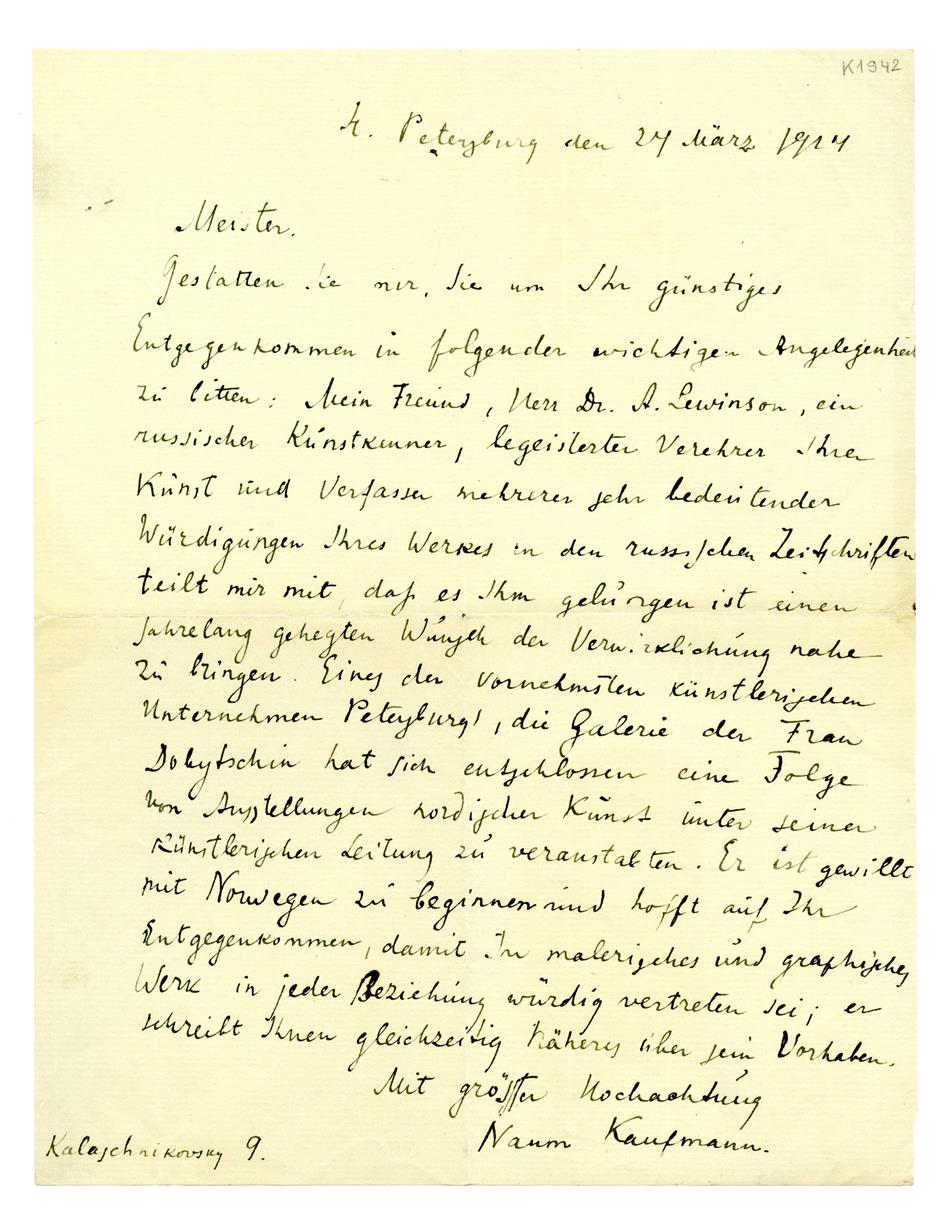 K1942
St. Petersburg den 27 März 1914
Meister.
Gestatten Sie mir, Sie um Ihr günstiges
Entgegenkommen in folgender wichtigen Angelegenheit
zu bitten: Mein Freund, Herr Dr. A. Lewinson, ein
russischer Kunstkenner, begeisterter Verehrer Ihrer
Kunst und Verfasser mehrerer sehr bedeutender
Würdigungen Ihres Werkes in den russischen Zeitschriften
teilt mir mit, daß es Ihm gelungen ist einen
Jahrelang gehegten Wunsch der Verwirklichung nahe
zu bringen. Eines der vornehmsten künstlerischen
Unternehmen Petersburgs, die Galerie der Frau
Dobytschin hat sich entschlossen eine Folge
von Ausstellungen nordischer Kunst unter seiner
künstlerischen Leitung zu veranstalten. Er ist gewillt
mit Norwegen zu beginnen und hofft auf Ihr
Entgegenkommen, damit Ihr malerisches und graphisches
Werk in jeder Beziehung würdig vertreten sei; er
schreibt Ihnen gleichzeitig Näheres über sein Vorhaben.
Mit größter Hochachtung
Naum Kaufmann.
Kalaschnikovsky 9.